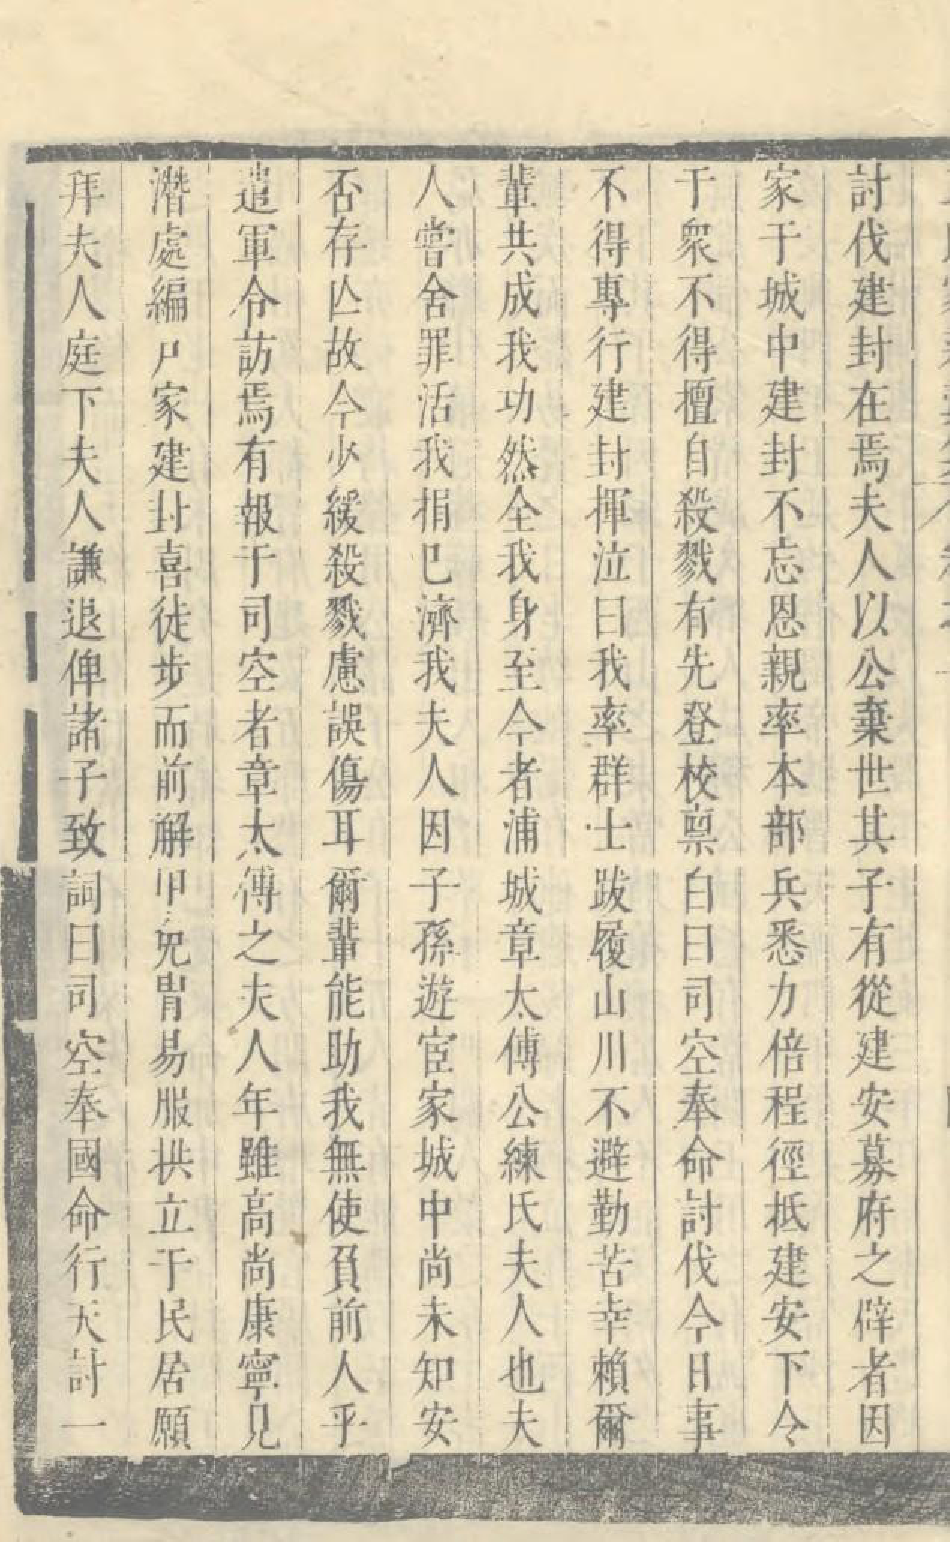 討伐建封在焉夫人以公棄世其子有從建安募府之辟者因
家于城中建封不忘恩親率本部兵悉力倍程徑抵建安下令
于衆不得擅自殺戮有先登校稟白曰司空奉命討伐今日事
不得專行建封揮泣曰我率群士跋履山川不避勤苦幸賴爾
輩共成我功然全我身至今者浦城章太傅公練氏夫人也夫
人嘗舍罪活我捐已濟我夫人因子孫遊宦家城中尚未知安
否存亾故今少緩殺戮慮誤傷耳爾輩能助我無使負前人乎
遣軍令訪焉有報于司空者章太傅之夫人年雖高尚康寧見
潛處編戸家建封喜徒步而前解甲免冑易服拱立于民居願
拜夫人庭下夫人謙退俾諸子致詞曰司空奉國命行天討一